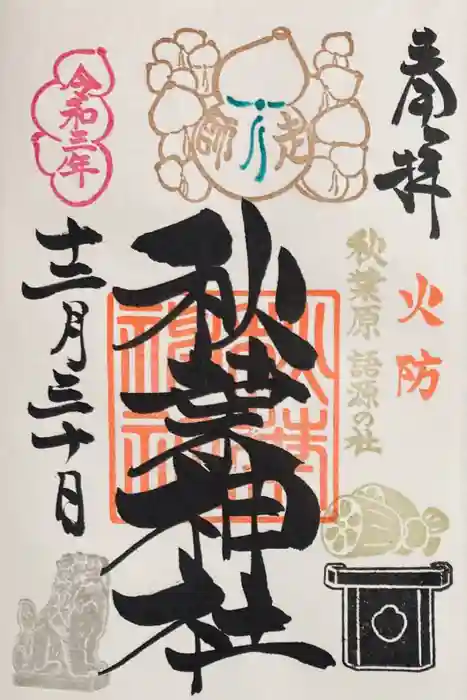 奉拝
火防
秋葉原 語源の社
師走
秋葉神社
秋葉
神社
令和三年
十二月三十日